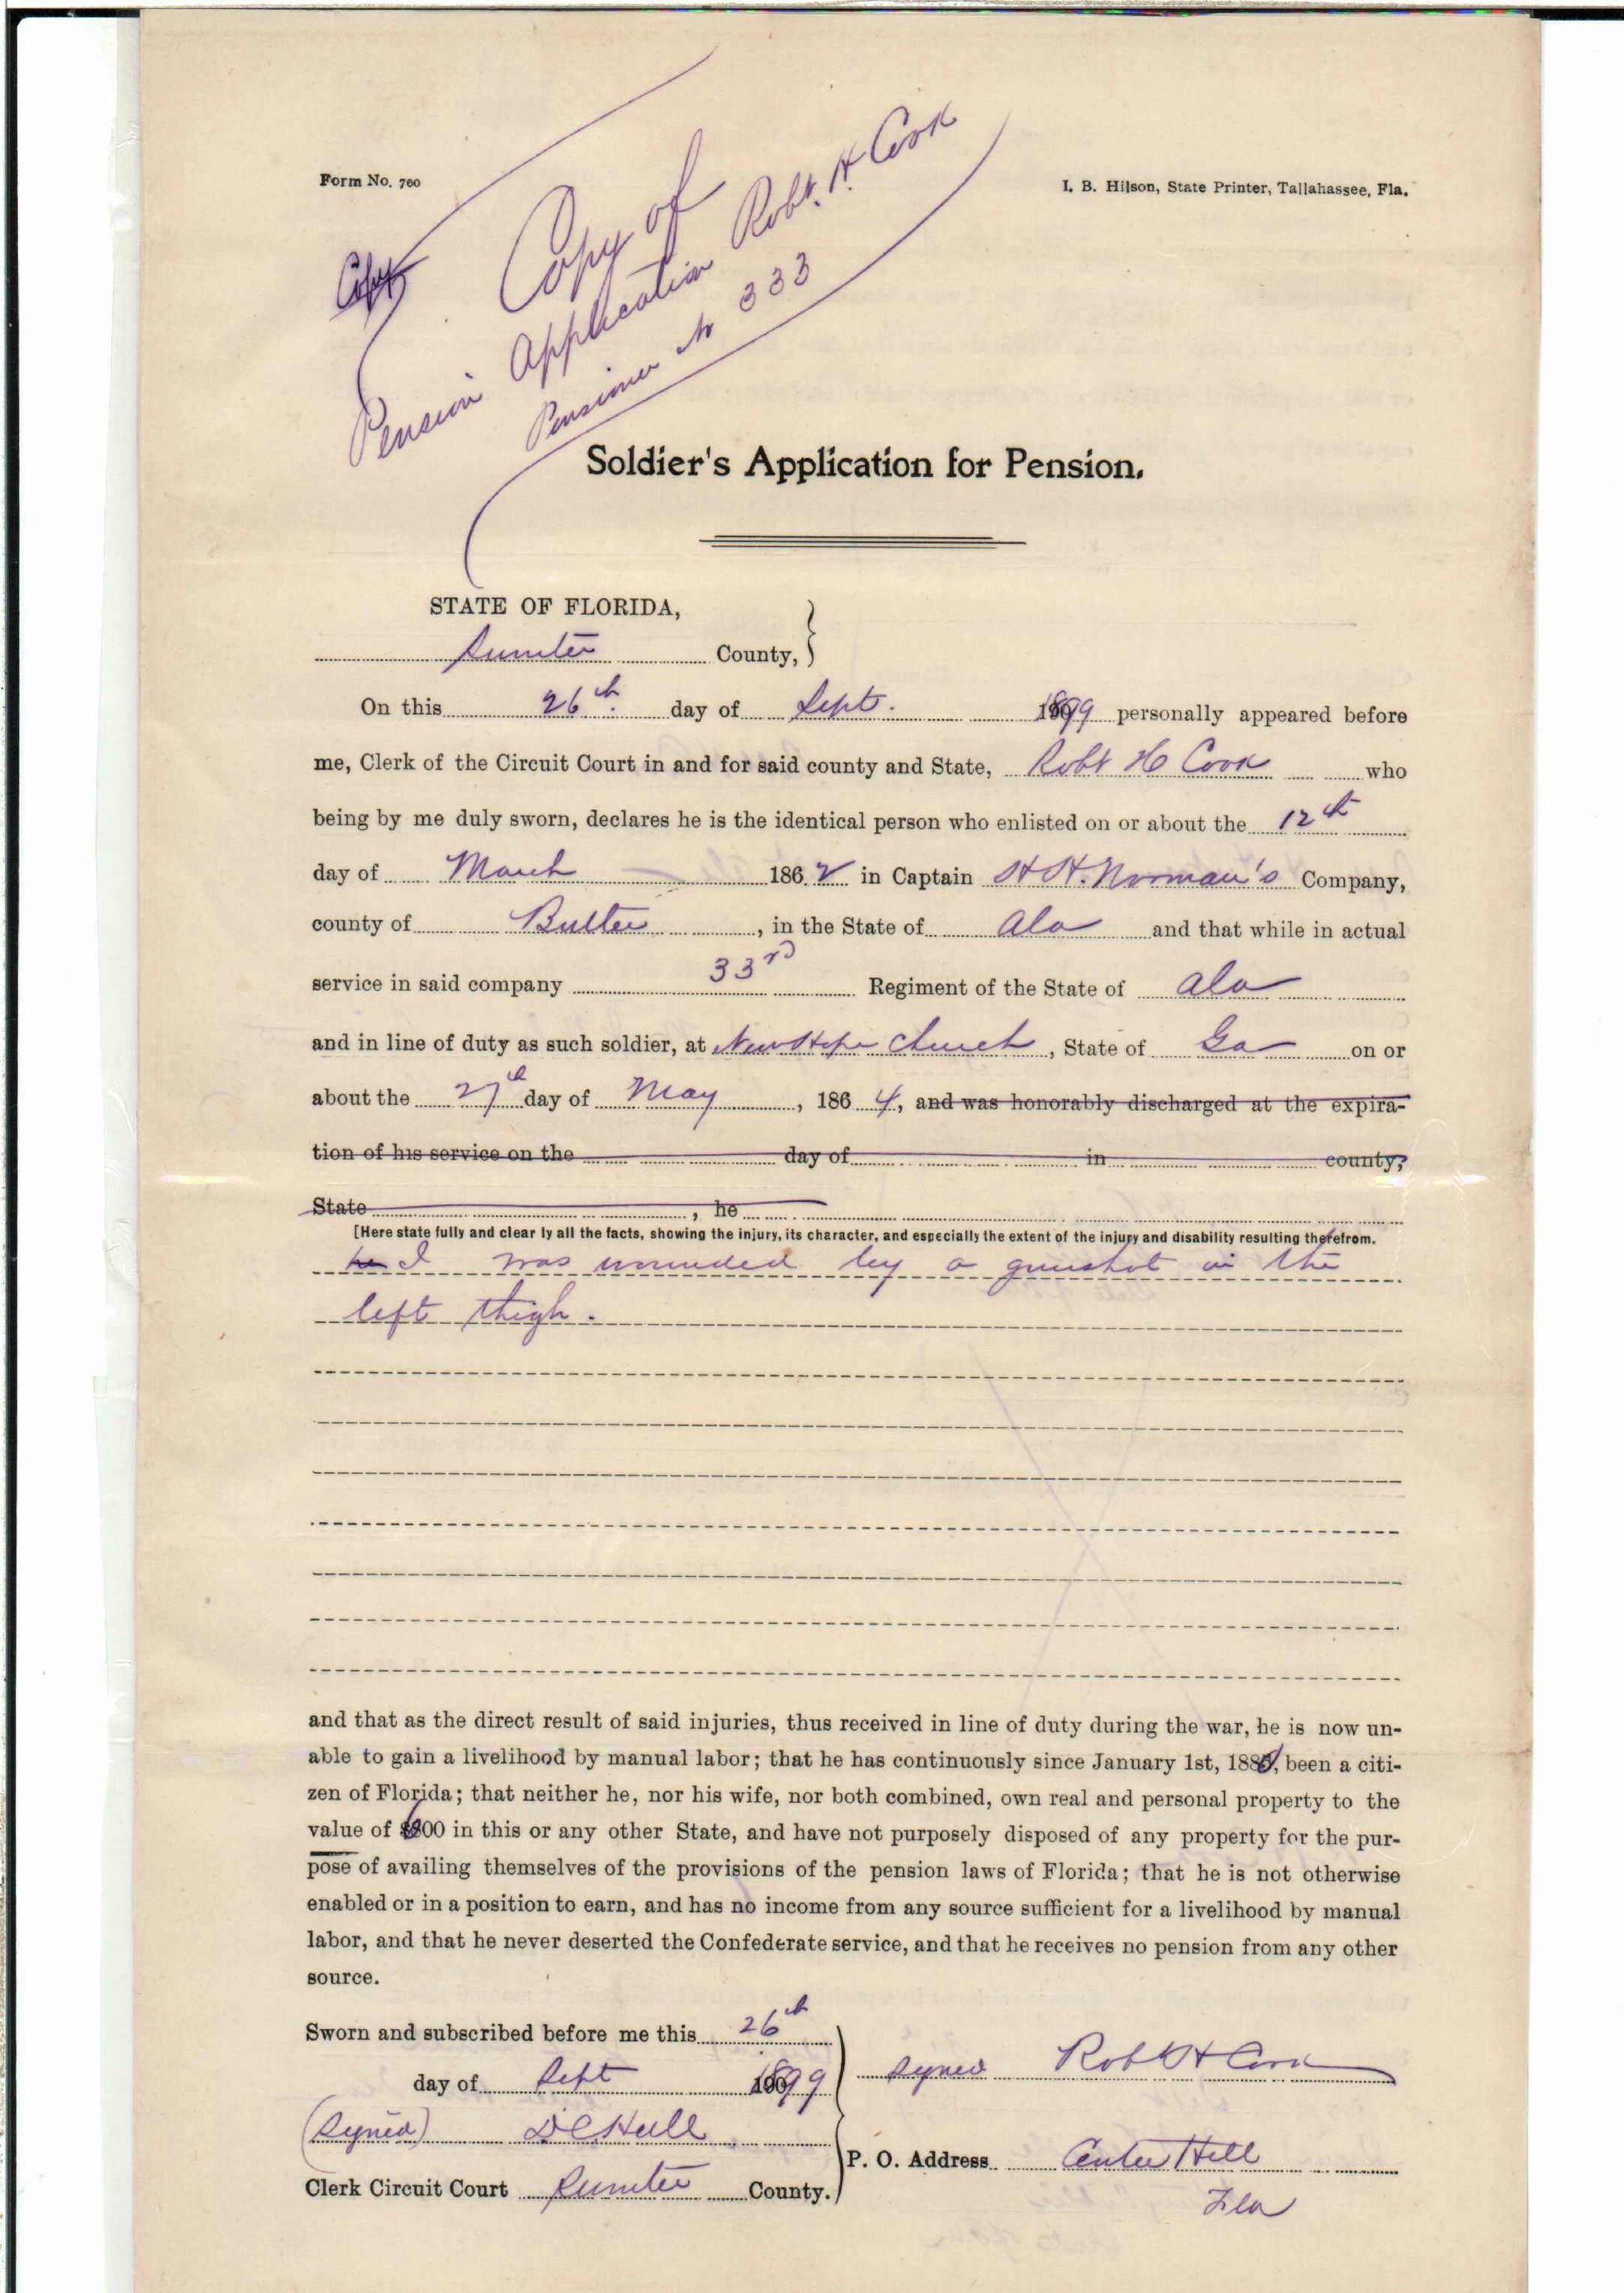 Form No. 760
I. B. Hilson, State Printer, Tallahassee, Fla.
Copy
Copy of
Pension Application Robt. H. Cook
Pensioner No 333
Soldier's Application for Pension.
STATE OF FLORIDA,
Sumter County, }
On this 26th day of Sept. 1899 personally appeared before
me, Clerk of the Circuit Court in and for said county and State, Robt H Cook who
being by me duly sworn, declares he is the identical person who enlisted on or about the 12th
day of March 1862 in Captain H H. Norman's Company,
county of Butler, in the State of Ala and that while in actual
service in said company 33rd Regiment of the State of Ala
and in line of duty as such soldier, at New Hope Church, State of Ga on or
about the 27th day of May, 1864, and was honorably discharged at the expira-
tion of his service on the day of in county,
State , he
[Here state fully and clear ly all the facts, showing the injury, its character, and especially the extent of the injury and disability resulting therefrom.
he I was wounded by a gunshot in the
left thigh.
and that as the direct result of said injuries, thus received in line of duty during the war, he is now un-
able to gain a livelihood by manual labor; that he has continuously since January 1st, 188 been a citi-
zen of Florida; that neither he, nor his wife, nor both combined, own real and personal property to the
value of 00 in this or any other State, and have not purposely disposed of any property for the pur-
pose of availing themselves of the provisions of the pension laws of Florida; that he is not otherwise
enabled or in a position to earn, and has no income from any source sufficient for a livelihood by manual
labor, and that he never deserted the Confederate service, and that he receives no pension from any other
source.
Sworn and subscribed before me this 26th
day of Sept 1899
signed Robt H Cook
(Signed) D C Hull
P. O. Address Center Hill
Clerk Circuit Court Sumter County.
Fla